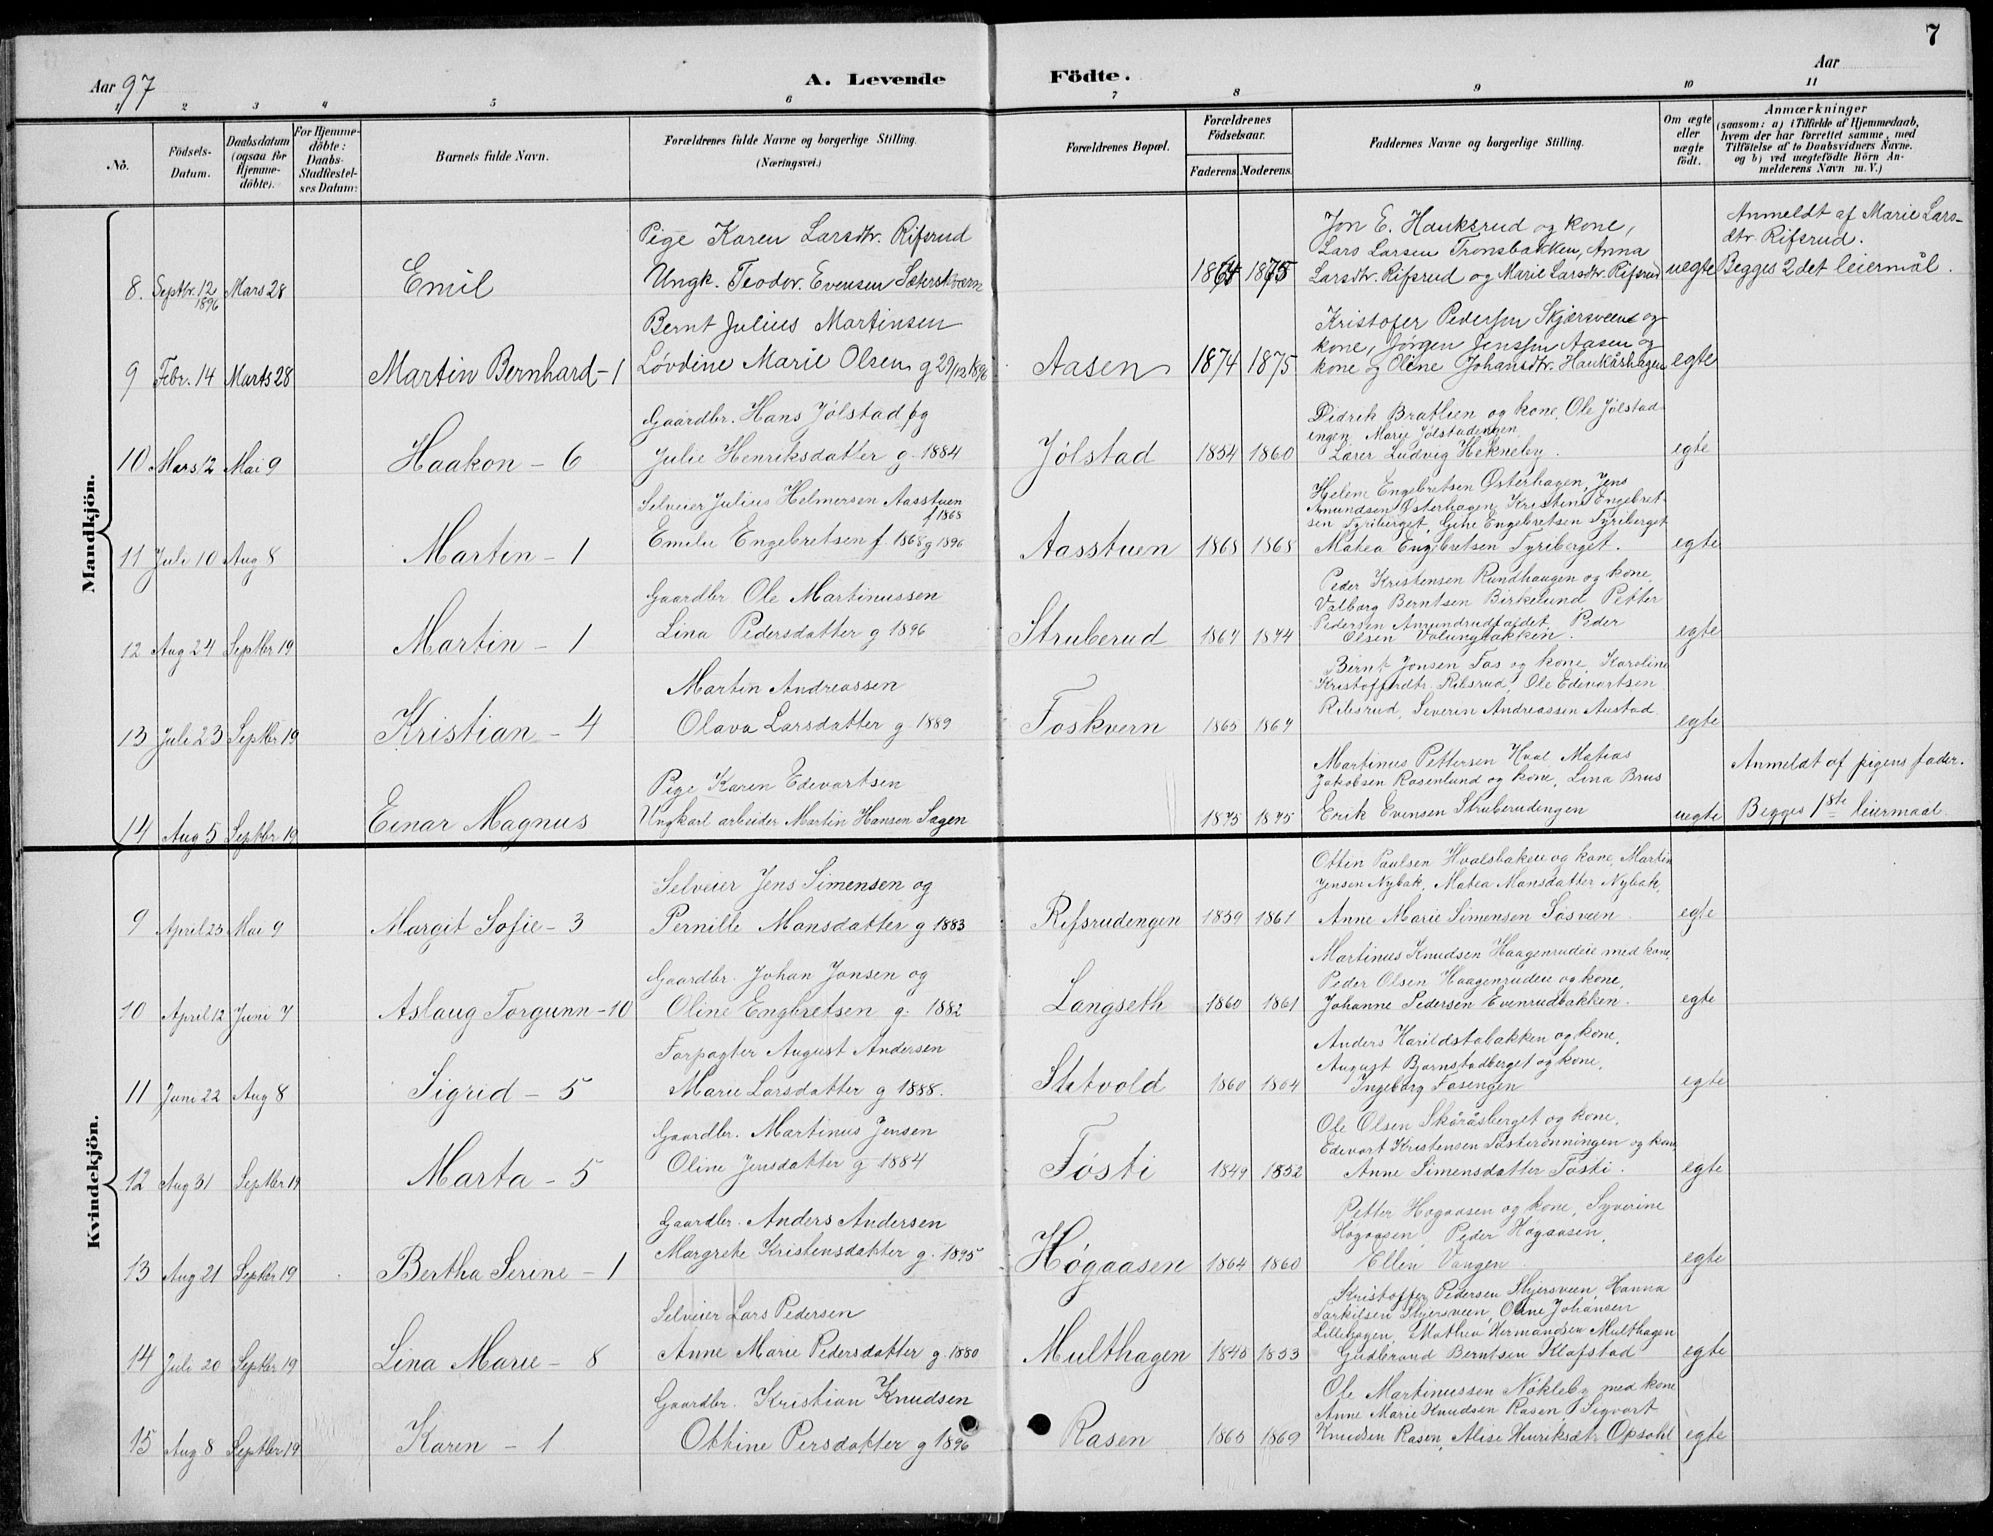 7
Aar 97
A. Levende Födte.
Aar
1 2 3 4 5 6 7 8 9 10 11
No.
Födsels-Datum.
Daabsdatum (ogsaa for Hjemme-döbte).
For Hjemme-döbte: Daabs-Stadfæstel-ses Datum:
Barnets fulde Navn.
Forældrenes fulde Navne og borgerlige Stilling. (Næringsvei.)
Forældrenes Bopæl.
Forældrenes Födselsaar.
Faderens. Moderens.
Faddernes Navne og borgerlige Stilling.
Om ægte eller uægte födt.
Anmærkninger
(saasom: a) i Tilfælde af Hjemmedaab,
hvem der har forrettet samme, med
Tilföielse af to Daabsvidners Navne.
og b) ved uægtefödte Börn An-
melderens Navn m. V.)
Mandkjön.
Pige Karen Larsdtr. Rifsrud
Jon E. Hauksrud og kone,
Anmeldt af Marie Lars-
Lars Larsen Tronsbakken, Anna
dtr. Rifsrud.
8. Septbr. 12 1896 Mars 28 Emil Ungk. Teodor Evensen Sæterskværn 1864 1875 Larsdtr. Rifsrud og Marie Larsdtr. Rifsrud uegte Begges 2det leiermål.
Bernt Julius Martinsen
Kristofer Pedersen Skjærsveen og
kone, Jørgen Jenssen Aasen og
9 Febr. 14 Marts 28 Martin Bernhard - 1 Løvdine Marie Olsen g 29/12 1896 Aasen 1874 1875 kone og Oline Johansdtr. Haukåshagen egte
Gaardbr. Hans Jølstad og
Didrik Bratlien og kone, Ole Jølstad-
engen, Marie Jølstadengen
10 Mars 12 Mai 9 Haakon - 6 Julie Henriksdatter g. 1884 Jølstad 1854 1860 Lærer Ludvig Hekneby. egte
Selveier Julius Helmersen Aasstuen
f 1868
Helene Engebretsen Østerhagen, Jens
Amundsen Østerhagen, Kristine Engebret-
sen Tyriberget, Gine Engebretsen Tyriberget
11 Juli 10 Aug 8 Martin - 1 Emilie Engebretsen f. 1868 g 1896 Aasstuen 1868 1868 Matea Engebretsen Tyriberget. egte
Gaardbr Ole Martinussen
Peder Kristensen Rundhaugen og kone,
Valborg Berntsen Birkelund Petter
Pedersen Amundrudfaldet, Peder
12 Aug 24 Septbr 19 Martin - 1 Lina Pedersdatter g 1896 Struberud 1867 1874 Olsen Volungbakken. egte
Martin Andreassen
Bernt Jonsen Fos og kone, Karoline
Kristofferdtr Rilsrud, Ole Edevartsen
13 Juli 23 Septbr 19 Kristian - 4 Olava Larsdatter g 1889 Foskvern 1865 1867 Rilsrud, Severin Andreassen Austad egte
Pige Karen Edevartsen
Martinus Pettersen Hval Matias
Anmeldt af pigens fader.
Jakobsen Rosenlund og kone, Lina Brus
14 Aug 5 Septbr 19 Einar Magnus Ungkarl arbeider Martin Hansen Sagen 1875 1875 Erik Evensen Struberudengen uegte Begges 1ste leiermaal.
Kvindekjön.
Selveier Jens Simensen og
Ottin Paulsen Hvalsbakken og kone, Martin
Jensen Nybak, Matea Monsdatter Nybak,
9 April 23 Mai 9 Margit Sofie - 3 Pernille Monsdatter g 1883 Rifsrudengen 1859 1861 Anne Marie Simensen Søsveen egte
Gaardbr. Johan Jonsen og
Martinus Knudsen Haagenrudeie med kone,
Peder Olsen Haagenrudeie og kone,
10 April 12 Juni 7 Aslaug Torgunn - 10 Oline Engbretsen g. 1882 Langseth 1860 1861 Johanne Pedersen Evenrudbakken. egte
Forpagter August Andersen
Anders Harildstabakken og kone,
August Bjørnstadberget og kone,
11 Juni 22 Aug 8 Sigrid - 5 Marie Larsdatter g 1888. Slatvold 1860 1864 Ingeborg Fosengen egte
Gaardbr. Martinus Jensen
Ole Olsen Skåråsberget og kone,
Edevart Kristensen Søsterønningen og kone,
12 Aug 31 Septbr 19 Marta - 5 Oline Jensdatter g 1884 Føsti 1849 1852 Anne Simensdatter Føsti. egte
Gaardbr. Anders Andersen
Petter Høgaasen og kone, Syverine
Høgaasen, Peder Høgaasen,
13 Aug 21 Septbr 19 Bertha Serine - 1 Margrete Kristensdatter g. 1895 Høgaasen 1864 1860 Ellen Vangen egte
Selveier Lars Pedersen
Kristoffer Pedersen Skjersveen, Hanna
Tarkilsen Skjersveen, Oline Johansen
Lillehagen, Mathea Hermandsen Multhagen
14 Juli 20 Septbr 19 Lina Marie - 8 Anne Marie Pedersdatter g. 1880 Multhagen 1845 1853 Gudbrand Berntsen Klafstad egte
Gaardbr. Kristian Knudsen
Ole Martinussen Nøkleby med kone
Anne Marie Knudsen Rasen Sigvart
15 Aug 8 Septbr 19 Karen - 1 Ottine Persdatter g 1896 Rasen 1865 1869 Knudsen Rasen, Alise Henriksdtr Opsahl egte